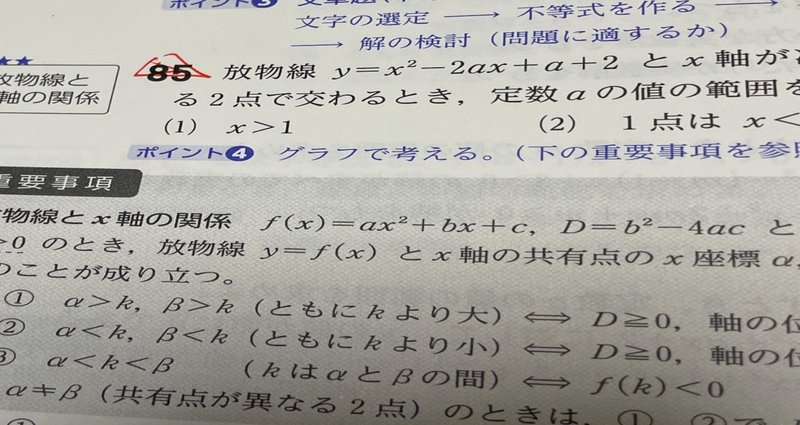 ポイント❸
文字の選定 ⟶ 不等式を作る ⟶
⟶ 解の検討 (問題に適するか)
★★
放物線と
軸の関係
85 放物線 y=x²−2ax+a+2 と x 軸が
る2点で交わるとき，定数 a の値の範囲を
(1) x>1 (2) 1点は x<
ポイント❹ グラフで考える。(下の重要事項を参照
重要事項
物線と x 軸の関係 f(x)=ax²+bx+c, D=b²−4ac と
>0 のとき，放物線 y=f(x) と x 軸の共有点の x 座標 α,
のことが成り立つ。
① α>k, β>k (ともに k より大) ⟺ D≧0, 軸の位
② α<k, β<k (ともに k より小) ⟺ D≧0, 軸の位
③ α<k<β (k は α と β の間) ⟺ f(k)<0
α≠β (共有点が異なる2点) のときは，①